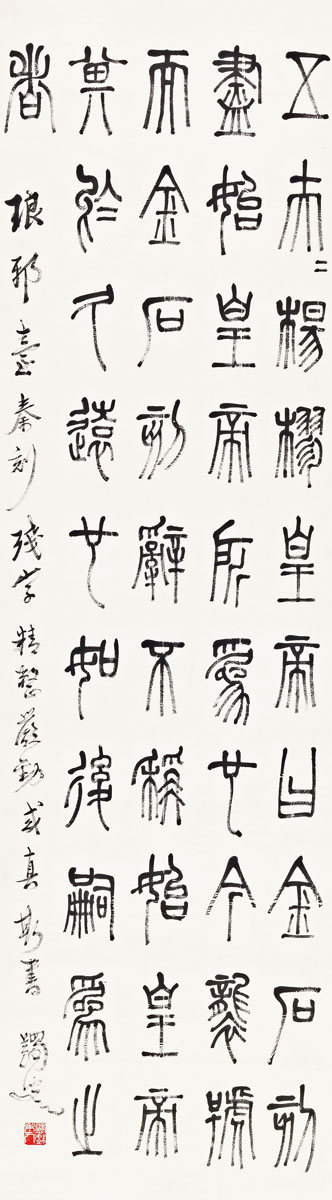 五夫〻楊樛皇帝曰金石刻
盡始皇帝所爲也今襲號
而金石刻辭不稱始皇帝
其於久遠也如後嗣爲之
者
琅邪臺秦刻殘字精整嚴勁或真斯書 蠲叟